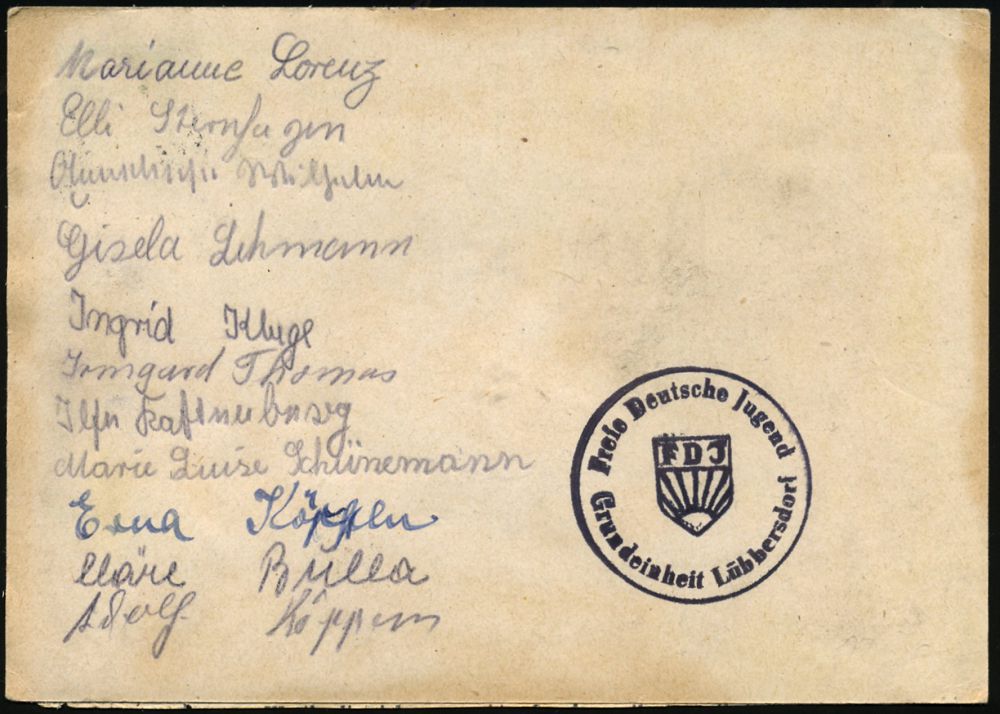 Marianne Lorenz
Elli Sternhagen
Wilhelm
Gisela Lehmann
Ingrid Kluge
Irmgard Thomas
Marie Luise Schünemann
Erna Köppen
Kläre Bulla
Adolf Köppen
Freie Deutsche Jugend
FDJ
Grundeinheit Lübbersdorf